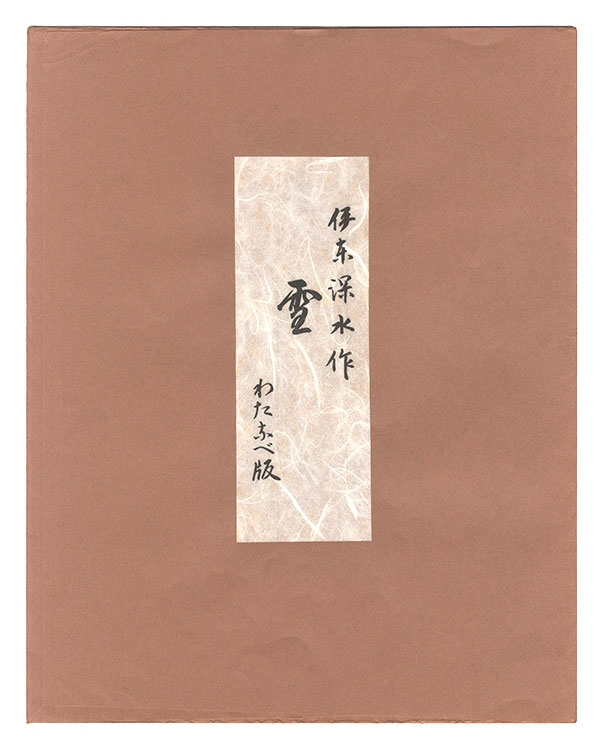 伊東深水作
雪
わたなべ版